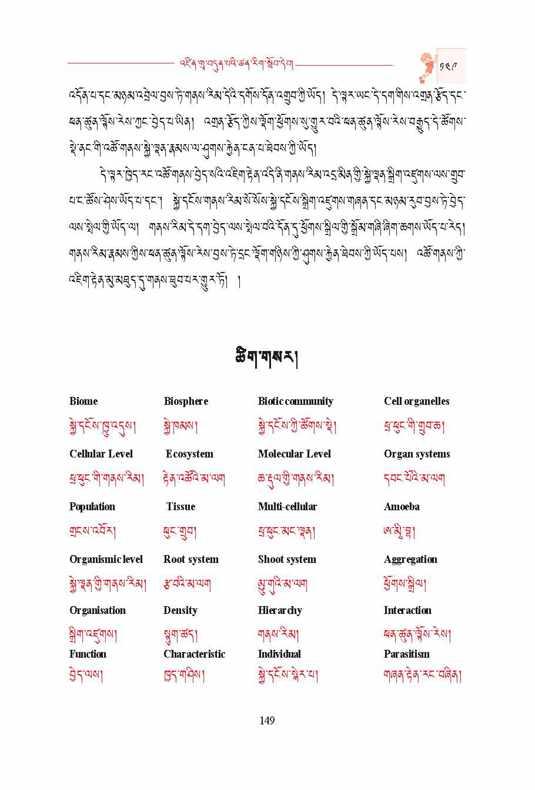 འཛིན་གྲྭ་བདུན་པའི་ཚན་རིག་སློབ་དེབ།
༡༤༩
འདོན་པ་དང་མཉམ་འབྲེལ་བྱས་ཏེ་གནས་རིམ་དེའི་དགོས་དོན་འགྲུབ་ཀྱི་ཡོད། དེ་ལྟར་ཡང་དེ་དག་གིས་འགྲན་རྩོད་དང་
ཕན་ཚུན་ལྟོས་རེས་ཀྱང་བྱེད་པ་ཡིན། འགྲན་རྩོད་ཀྱིས་ལྡོག་ཕྱོགས་སུ་གྱུར་བའི་ཕན་ཚུན་ལྟོས་རེས་བརྒྱུད་དེ་ཚོགས་
སྡེ་ནང་གི་འཚོ་གནས་སྐྱེ་ལྡན་རྣམས་ལ་ཤུགས་རྐྱེན་ངན་པ་ཐེབས་ཀྱི་ཡོད།
དེ་ལྟར་ཁྱེད་རང་འཚོ་གནས་བྱེད་སའི་འཇིག་རྟེན་འདི་ནི་གནས་རིམ་འདྲ་མིན་གྱི་སྐྱེ་ལྡན་སྒྲིག་འཛུགས་ལས་གྲུབ་
པ་ང་ཚོས་ཤེས་ཡོད་པ་དང་། སྐྱེ་དངོས་གནས་རིམ་སོ་སོས་སྐྱེ་དངོས་སྒྲིག་འཛུགས་གཞན་དང་མཉམ་རུབ་བྱས་ཏེ་བྱེད་
ལས་སྤེལ་གྱི་ཡོད་ལ། གནས་རིམ་དེ་དག་བྱེད་ལས་སྤེལ་བའི་དོན་དུ་ཕྱོགས་སྒྲིལ་གྱི་སྒྲོམ་གཞི་ཞིག་ཆགས་ཡོད་པ་རེད།
གནས་རིམ་རྣམས་ཀྱིས་ཕན་ཚུན་ལྟོས་རེས་བྱས་ཏེ་དྲང་ལྡོག་གཉིས་ཀྱི་ཤུགས་རྐྱེན་ཐེབས་ཀྱི་ཡོད་པས། འཚོ་གནས་ཀྱི་
འཇིག་རྟེན་མུ་མཐུད་དུ་གནས་ཐུབ་པར་གྱུར་ཏོ། །
ཚིག་གསར།
Biome Biosphere Biotic community Cell organelles
སྐྱེ་དངོས་ཁྱུ་འདུས། སྐྱེ་ཁམས། སྐྱེ་དངོས་ཀྱི་ཚོགས་སྡེ། ཕྲ་ཕུང་གི་གྲུབ་ཆ།
Cellular Level Ecosystem Molecular Level Organ systems
ཕྲ་ཕུང་གི་གནས་རིམ། རྟེན་འཚོའི་མ་ལག ཆ་རྡུལ་གྱི་གནས་རིམ། དབང་པོའི་མ་ལག
Population Tissue Multi-cellular Amoeba
གྲངས་འབོར། ཕུང་གྲུབ། ཕྲ་ཕུང་མང་ལྡན། ཨ་མྰི་བྷ།
Organismic level Root system Shoot system Aggregation
སྐྱེ་ལྡན་གྱི་གནས་རིམ། རྩ་བའི་མ་ལག མྱུ་གུའི་མ་ལག ཕྱོགས་སྒྲིལ།
Organisation Density Hierarchy Interaction
སྒྲིག་འཛུགས། སྟུག་ཚད། གནས་རིམ། ཕན་ཚུན་ལྟོས་རེས།
Function Characteristic Individual Parasitism
བྱེད་ལས། ཁྱད་གཤིས། སྐྱེ་དངོས་སྒེར་པ། གཞན་རྟེན་རང་བཞིན།
149